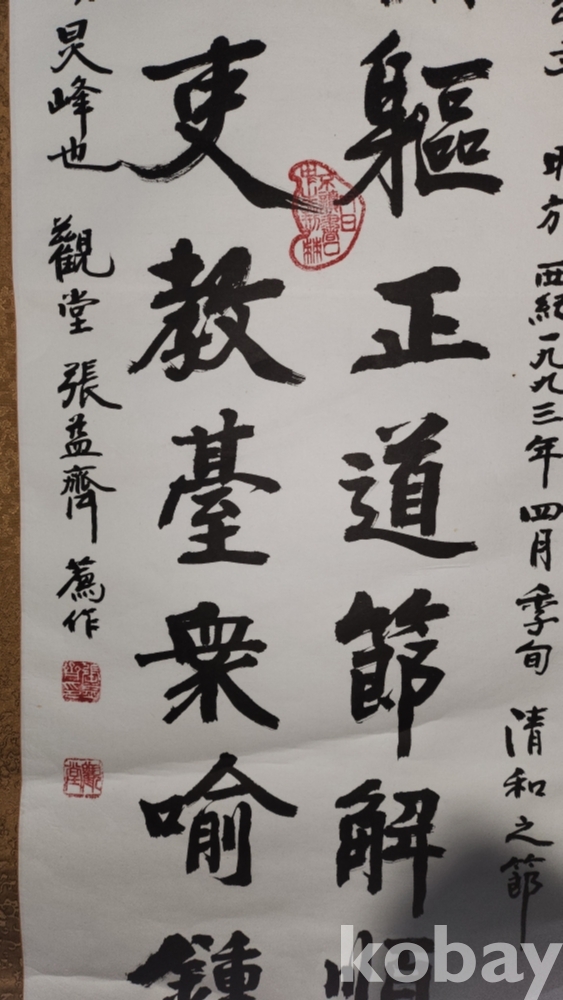 明方 西紀一九九三年 四月季旬 清和之節
軀正道節解順
吏教臺衆喻鍾
昊峰也 觀堂 張益齊 薦作
觀堂
kobay